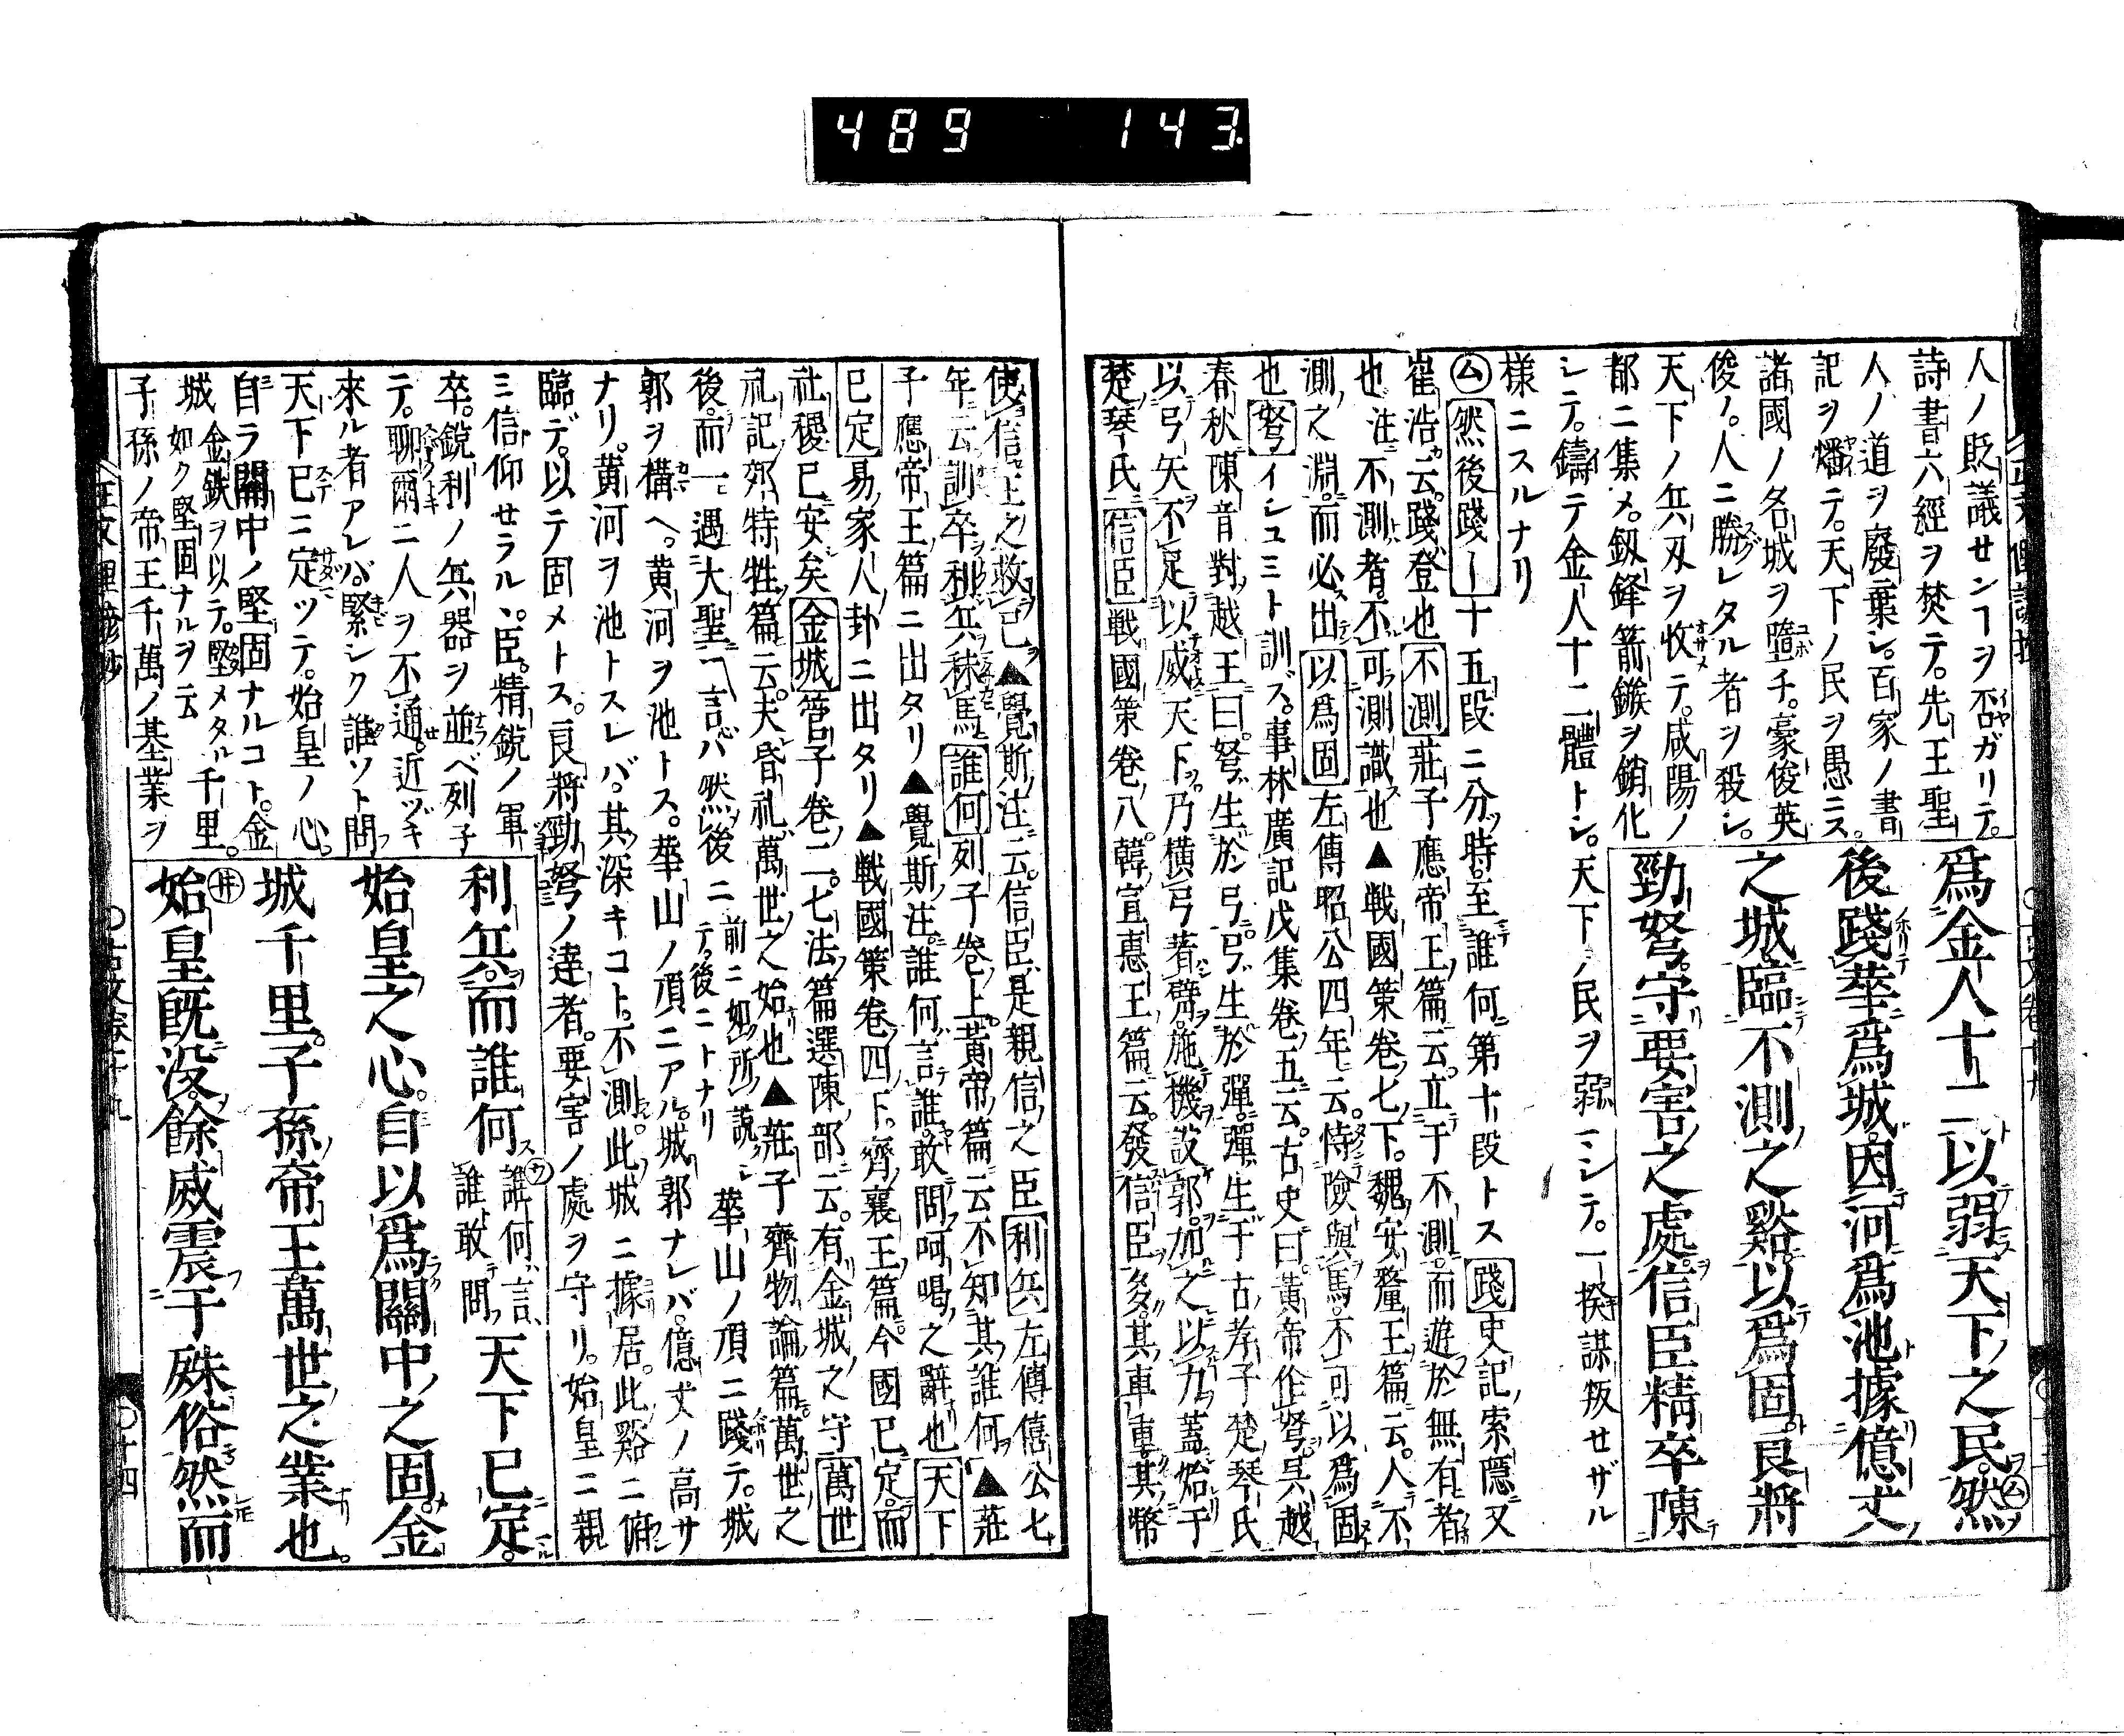 489 143
爲金人十二以弱天下之民然
後踐華爲城因河爲池據億丈
之城臨不測之谿以爲固良將
勁弩守要害之處信臣精卒陳
人ノ貶議センヿヲ否ガリテ。
詩書六經ヲ焚テ。先王聖
人ノ道ヲ廢棄シ。百家ノ書
記ヲ燔テ。天下ノ民ヲ愚ニス。
諸國ノ名城ヲ墮チ。豪俊英
俊ノ。人ニ勝レタル者ヲ殺シ。
天下ノ兵刃ヲ收テ。咸陽ノ
都ニ集メ。釼鋒箭鏃ヲ銷化
シテ。鑄テ金人十二體トシ。天下ノ民ヲ弱ニシテ。一揆謀叛セザル
樣ニスルナリ
㋰然後踐ー十五段二分時。至誰何第十段トス踐史記索隱又
崔浩云。踐登也不測莊子應帝王篇云。立于不測。而遊於無有者
也注不測者不可測識也▲戰國策卷七下。魏安釐王篇云。人不
測之淵。而必出以爲固左傳昭公四年云。恃險與馬。不可以爲固
也弩イシユミト訓ズ。事林廣記戊集卷五云。古史曰。黃帝作弩。吳越
春秋陳音對越王曰。弩生於弓。弓生於彈。彈生于古孝子楚琴氏
以弓矢不足以威天下。乃橫弓着臂。施機設郭。加之以九。蓋始于
楚琴氏信臣戰國策卷八。韓宣惠王篇云。發信臣。多其車。重其幣
使信王之救己▲覺斯注云。信臣是親信之臣利兵左傳僖公七
年云訓卒利兵秣馬誰何列子卷上。黃帝篇云不知其誰何▲莊
子應帝王篇ニ出タリ▲覺斯注。誰何言誰敢問。呵喝之辭也天下
已定易家人卦ニ出タリ▲戰國策卷四下。齊襄王篇。今國已定。而
社稷已安矣金城管子卷二。七法篇選陳部云。有金城之守萬世
礼記郊特牲篇云。夫昏礼萬世之始也▲莊子齊物論篇。萬世之
後。而一遇大聖言ハ然後ニ前ニ如所說テ。後ニトナリ華山ノ頂ニ踐テ。城
郭ヲ構ヘ。黃河ヲ池トス。華山ノ頂ニアル。城郭ナレバ。億丈ノ高サ
ナリ。黃河ヲ池トスレバ。其深キコト。不測。此城ニ據居。此谿ニ俯
臨デ。以テ固メトス。良將勁弩ノ達者。要害ノ處ヲ守リ。始皇ニ親
ミ信仰セラルヽ。臣。精銳ノ軍
卒。銳利ノ兵器ヲ並ベ列子
テ。聊爾ニ人ヲ不通。近ヅキ
來ル者アレバ。緊シク誰ソト問
天下已ニ定ツテ。始皇ノ心。
自ラ關中ノ堅固ナルコト。金
城金鉄ヲ以テ。堅メタル如ク堅固ナルヲ云千里。
子孫ノ帝王千萬ノ基業ヲ
利兵。而誰何誰何言、誰敢問天下已定。
始皇之心。自以爲關中之固。金
城千里。子孫帝王萬世之業也。
始皇既没。餘威震于殊俗然而